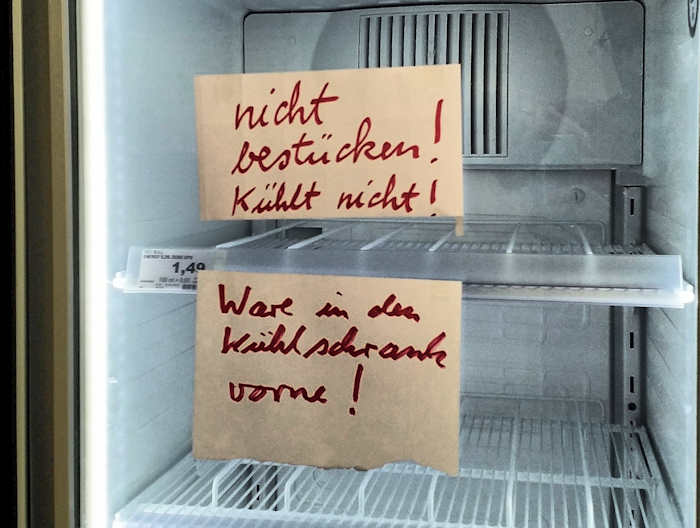 nicht
bestücken!
Kühlt nicht!
1,49
Ware in den
Kühlschrank
vorne!